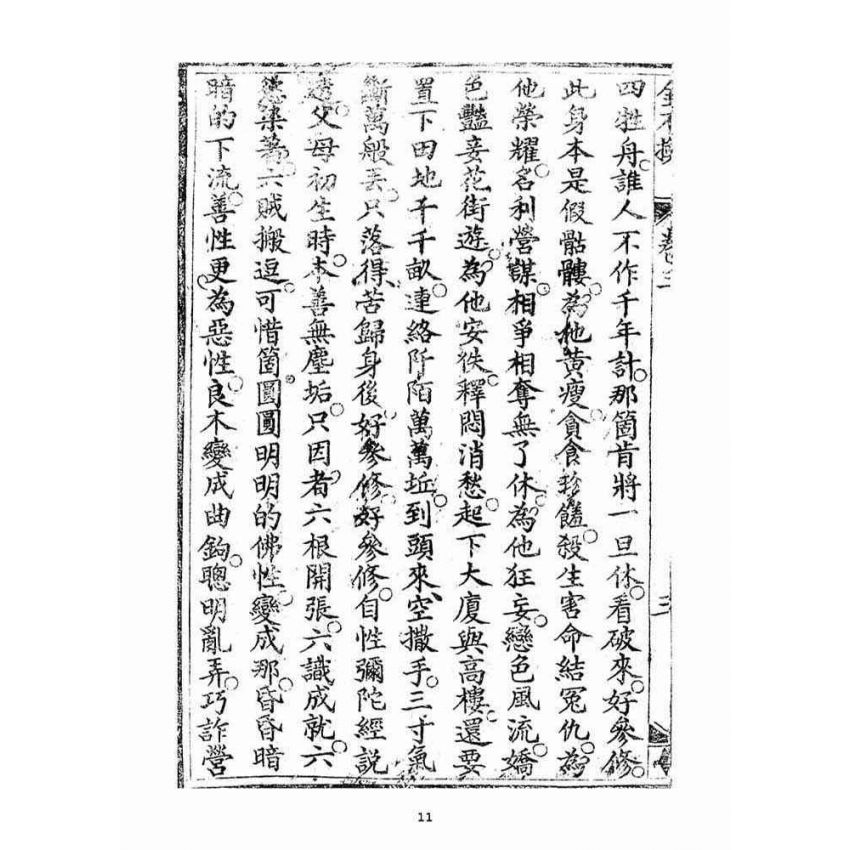 四牲舟。誰人不作千年計。那箇肯將一旦休。看破來。好參修。
此身本是假骷髏。為他黃瘦貪食珍饈。殺生害命結冤仇。為
他榮耀。名利營謀。相爭相奪無了休。為他狂妄。戀色風流。嬌
色豔妾花街遊。為他安佚。釋悶消愁。起下大廈與高樓。還要
置下田地千千畝。連絡阡陌萬萬坵。到頭來。空撒手。三寸氣
斷萬般丟。只落得。苦歸身後。好參修。好參修。自性彌陀經說
透。父母初生時。本善無塵垢。只因者六根開張。六識成就。六
慾染著。六賊搬逗。可惜箇圓圓明明的佛性。變成那。昏昏暗
暗的下流。善性更為惡性。良木變成曲鉤。聰明亂弄。巧詐營
卷三
三
11